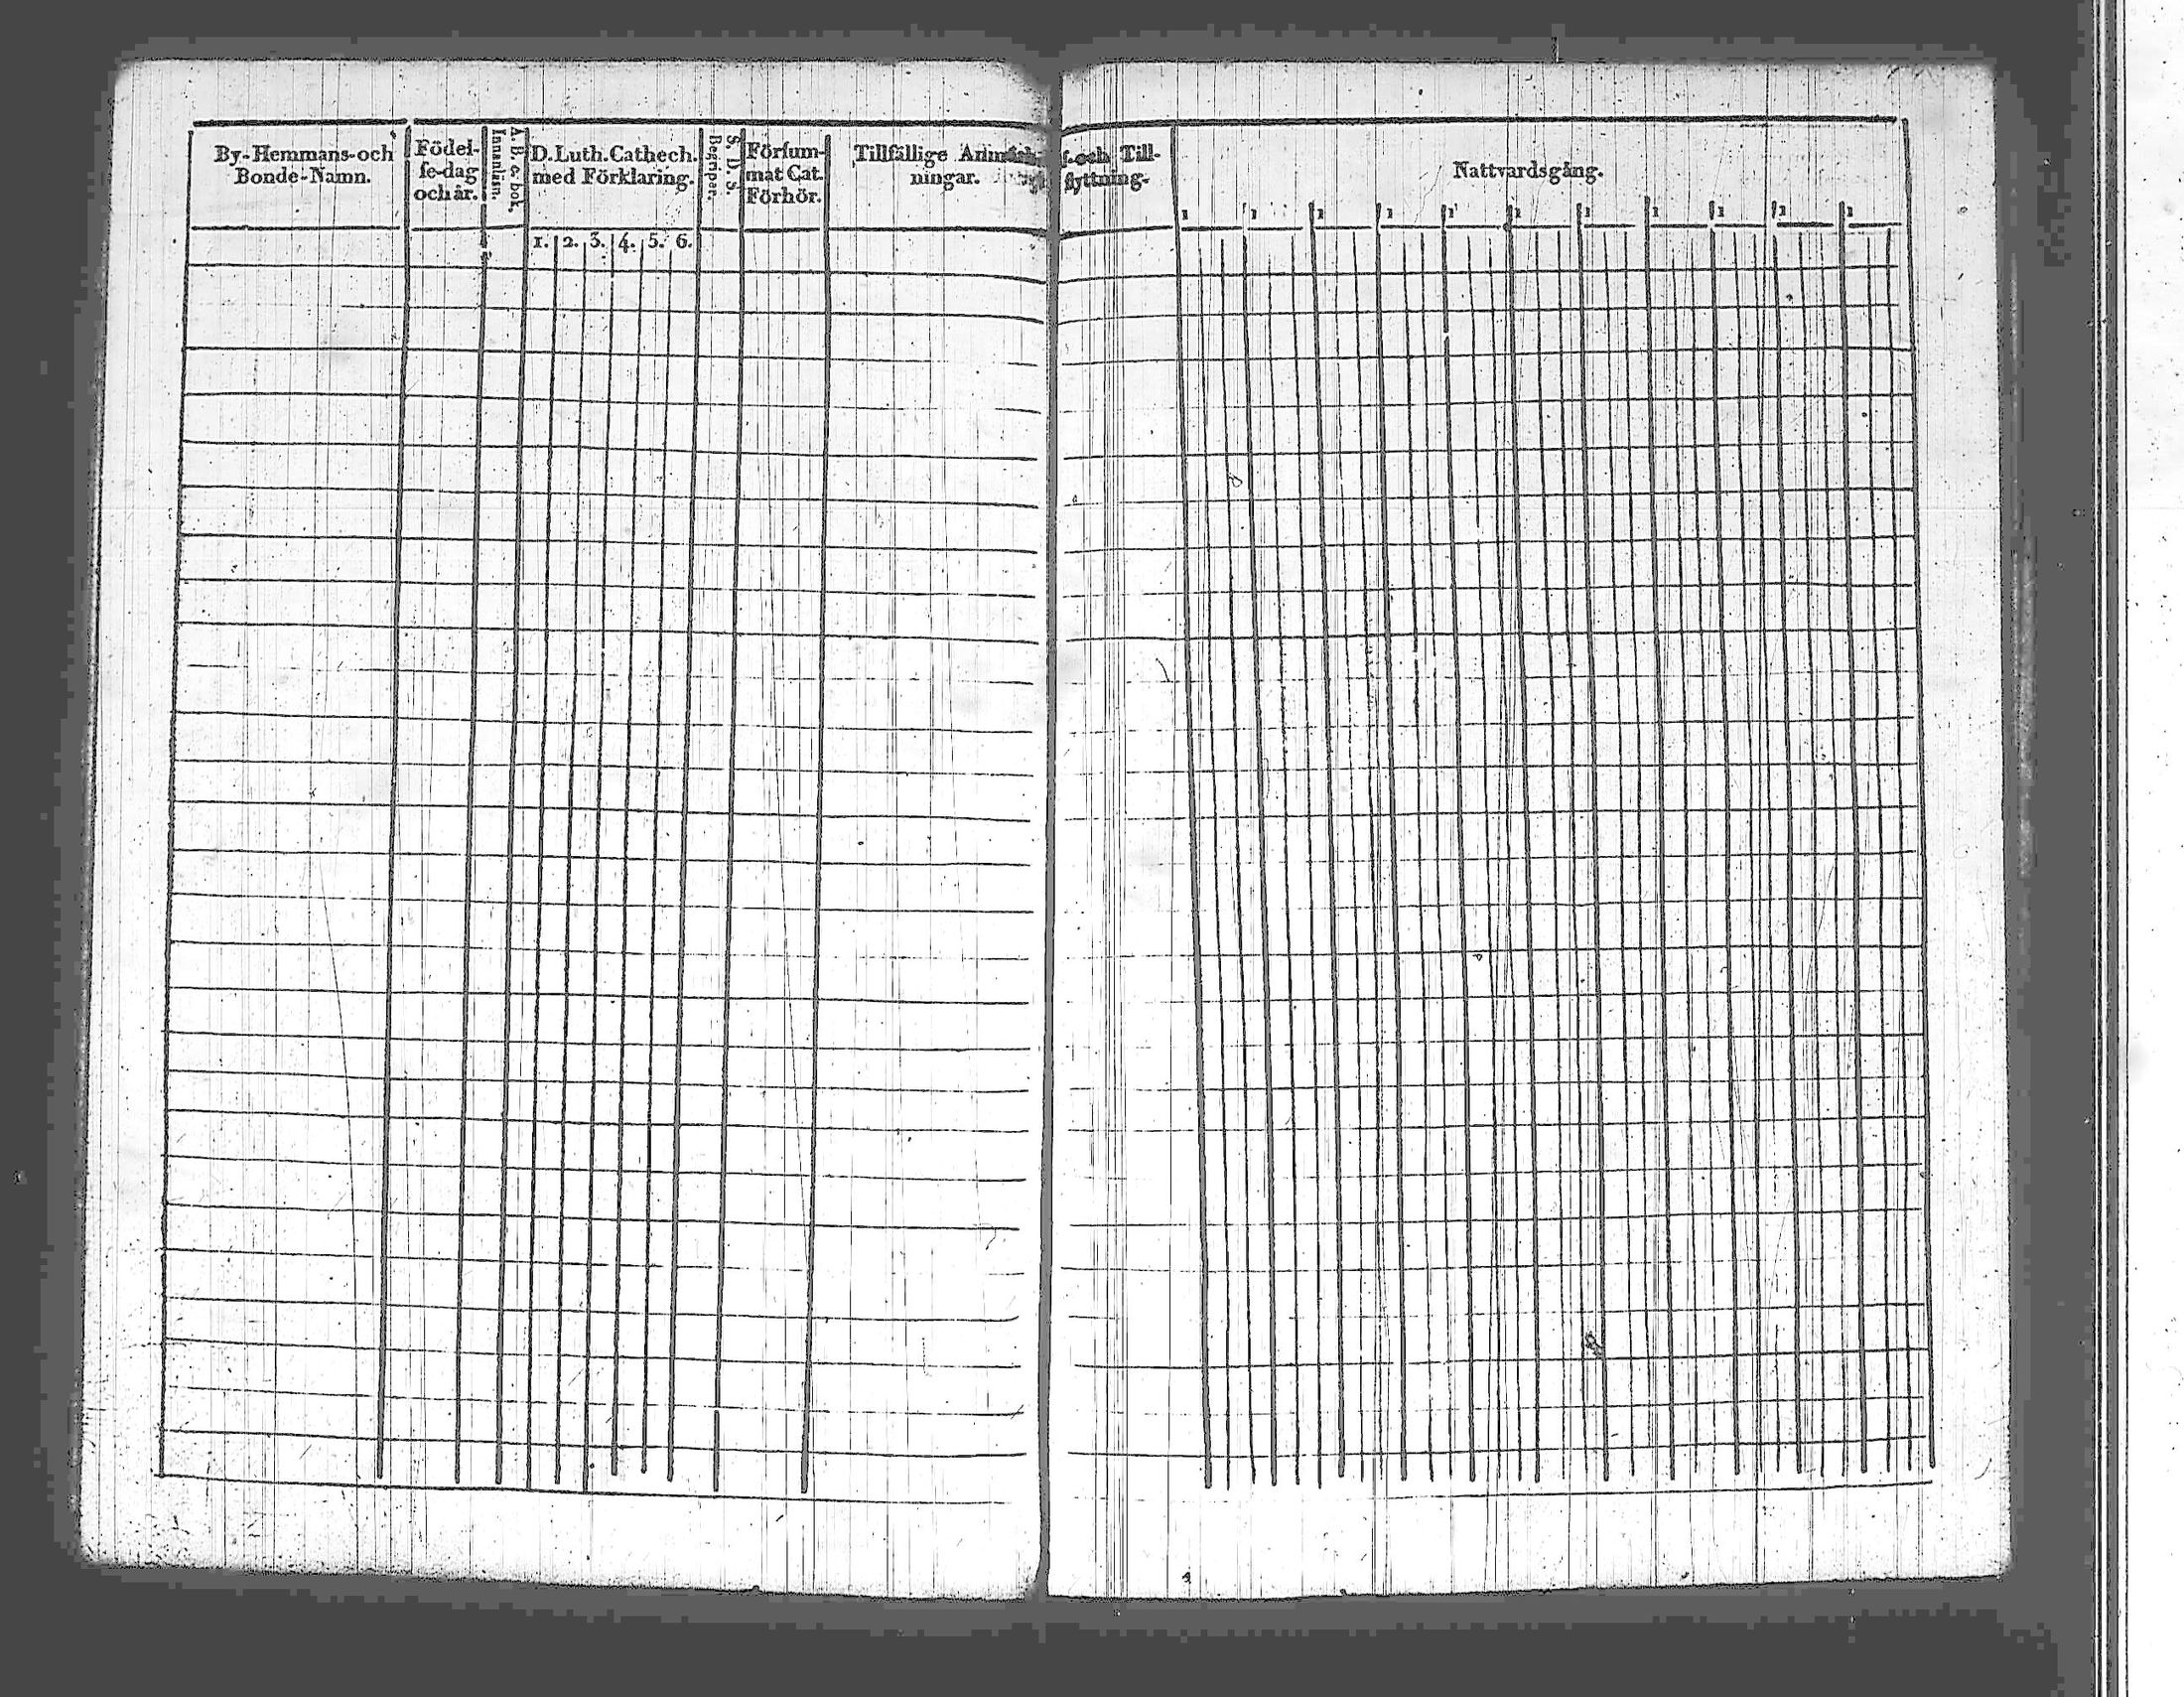 By-Hemmans-och
Bonde-Namn.
Födel-
se-dag
och år.
A. B. c. bok,
Innanläsn.
D. Luth. Cathech.
med Förklaring.
1. 2. 3. 4. 5. 6.
S. D. S.
Begriper.
Försum-
mat Cat.
Förhör.
Tillfällige
ningar.
och Till-
flyttning.
Nattvardsgång.
1 1 1 1 1 1 1 1 1 1 1